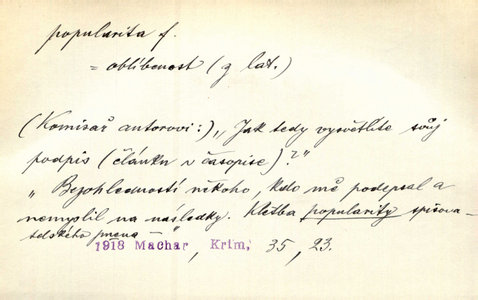 popularita f.
= oblíbenost (z lat.)
(Komisař autorovi:) „Jak tedy vysvětlíte svůj
podpis (článku v časopise)?"
„Bezohledností někoho, kdo mě podepsal a
nemyslil na následky. Kletba popularity spisova-
telského pera –"
1918 Machar, Krim, 35, 23.